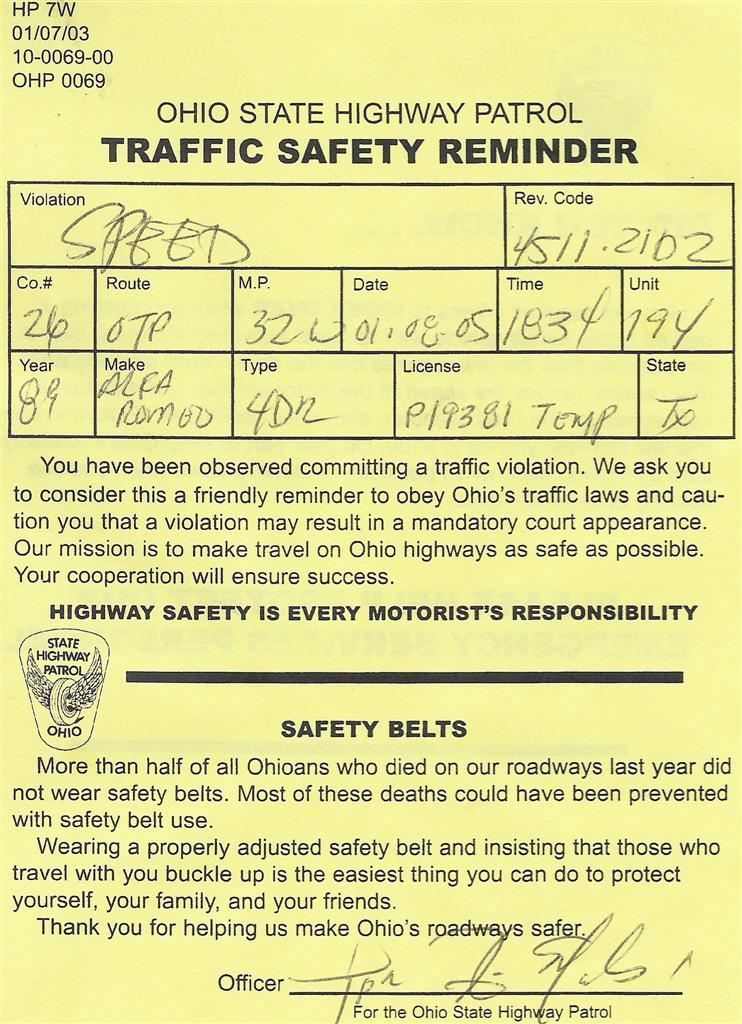 HP 7W
01/07/03
10-0069-00
OHP 0069
OHIO STATE HIGHWAY PATROL
TRAFFIC SAFETY REMINDER
Violation Rev. Code
SPEED 4511.21D2
Co.# Route M.P. Date Time Unit
26 OTP 32W 01.08.05 1834 194
Year Make Type License State
89 ALFA ROMEO 4DR P19381 TEMP TX
You have been observed committing a traffic violation. We ask you
to consider this a friendly reminder to obey Ohio's traffic laws and cau-
tion you that a violation may result in a mandatory court appearance.
Our mission is to make travel on Ohio highways as safe as possible.
Your cooperation will ensure success.
HIGHWAY SAFETY IS EVERY MOTORIST'S RESPONSIBILITY
STATE
HIGHWAY
PATROL
OHIO
SAFETY BELTS
More than half of all Ohioans who died on our roadways last year did
not wear safety belts. Most of these deaths could have been prevented
with safety belt use.
Wearing a properly adjusted safety belt and insisting that those who
travel with you buckle up is the easiest thing you can do to protect
yourself, your family, and your friends.
Thank you for helping us make Ohio's roadways safer.
Officer
For the Ohio State Highway Patrol